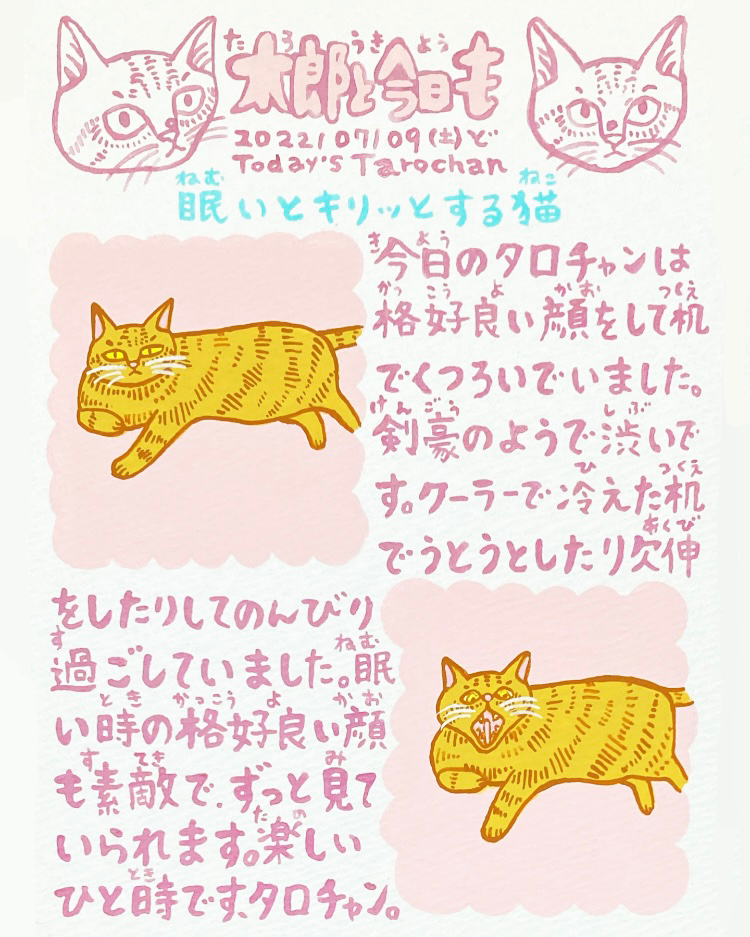 太郎と今日も
たろうきょう
2022/07/09(土)ど
Today's Tarochan
眠いとキリッとする猫
ねむねこ
今日のタロチャンは
きょう
格好良い顔をして机
かっこうよかおつくえ
でくつろいでいました。
剣豪のようで渋いで
けんごうしぶ
す。クーラーで冷えた机
ひつくえ
でうとうとしたり欠伸
あくび
をしたりしてのんびり
過ごしていました。眠
すねむ
い時の格好良い顔
ときかっこうよかお
も素敵で、ずっと見て
すてきみ
いられます。楽しい
たの
ひと時です、タロチャン。
とき